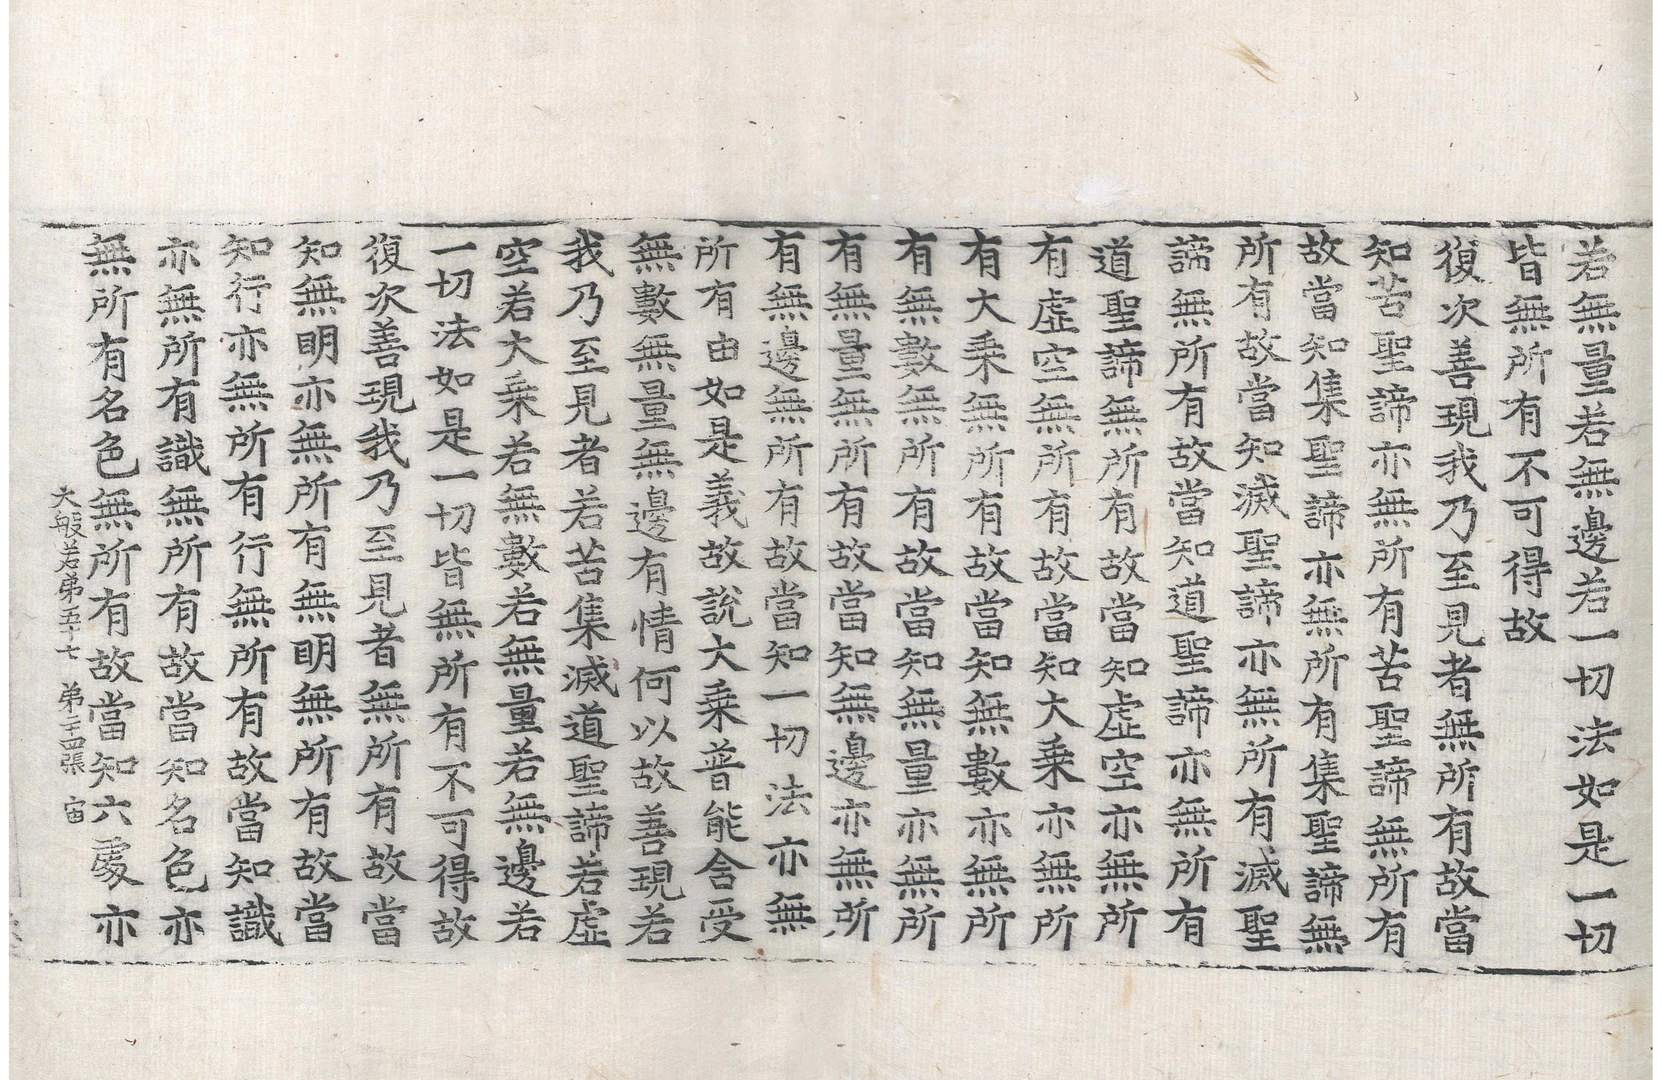 若無量若無邊若一切法如是一切
皆無所有不可得故
復次善現我乃至見者無所有故當
知苦聖諦亦無所有苦聖諦無所有
故當知集聖諦亦無所有集聖諦無
所有故當知滅聖諦亦無所有滅聖
諦無所有故當知道聖諦亦無所有
道聖諦無所有故當知虛空亦無所
有虛空無所有故當知大乘亦無所
有大乘無所有故當知無數亦無所
有無數無所有故當知無量亦無所
有無量無所有故當知無邊亦無所
有無邊無所有故當知一切法亦無
所有由如是義故說大乘普能含受
無數無量無邊有情何以故善現若
我乃至見者若苦集滅道聖諦若虛
空若大乘若無數若無量若無邊若
一切法如是一切皆無所有不可得故
復次善現我乃至見者無所有故當
知無明亦無所有無明無所有故當
知行亦無所有行無所有故當知識
亦無所有識無所有故當知名色亦
無所有名色無所有故當知六處亦
大般若弟五十七 弟二十四張 宙